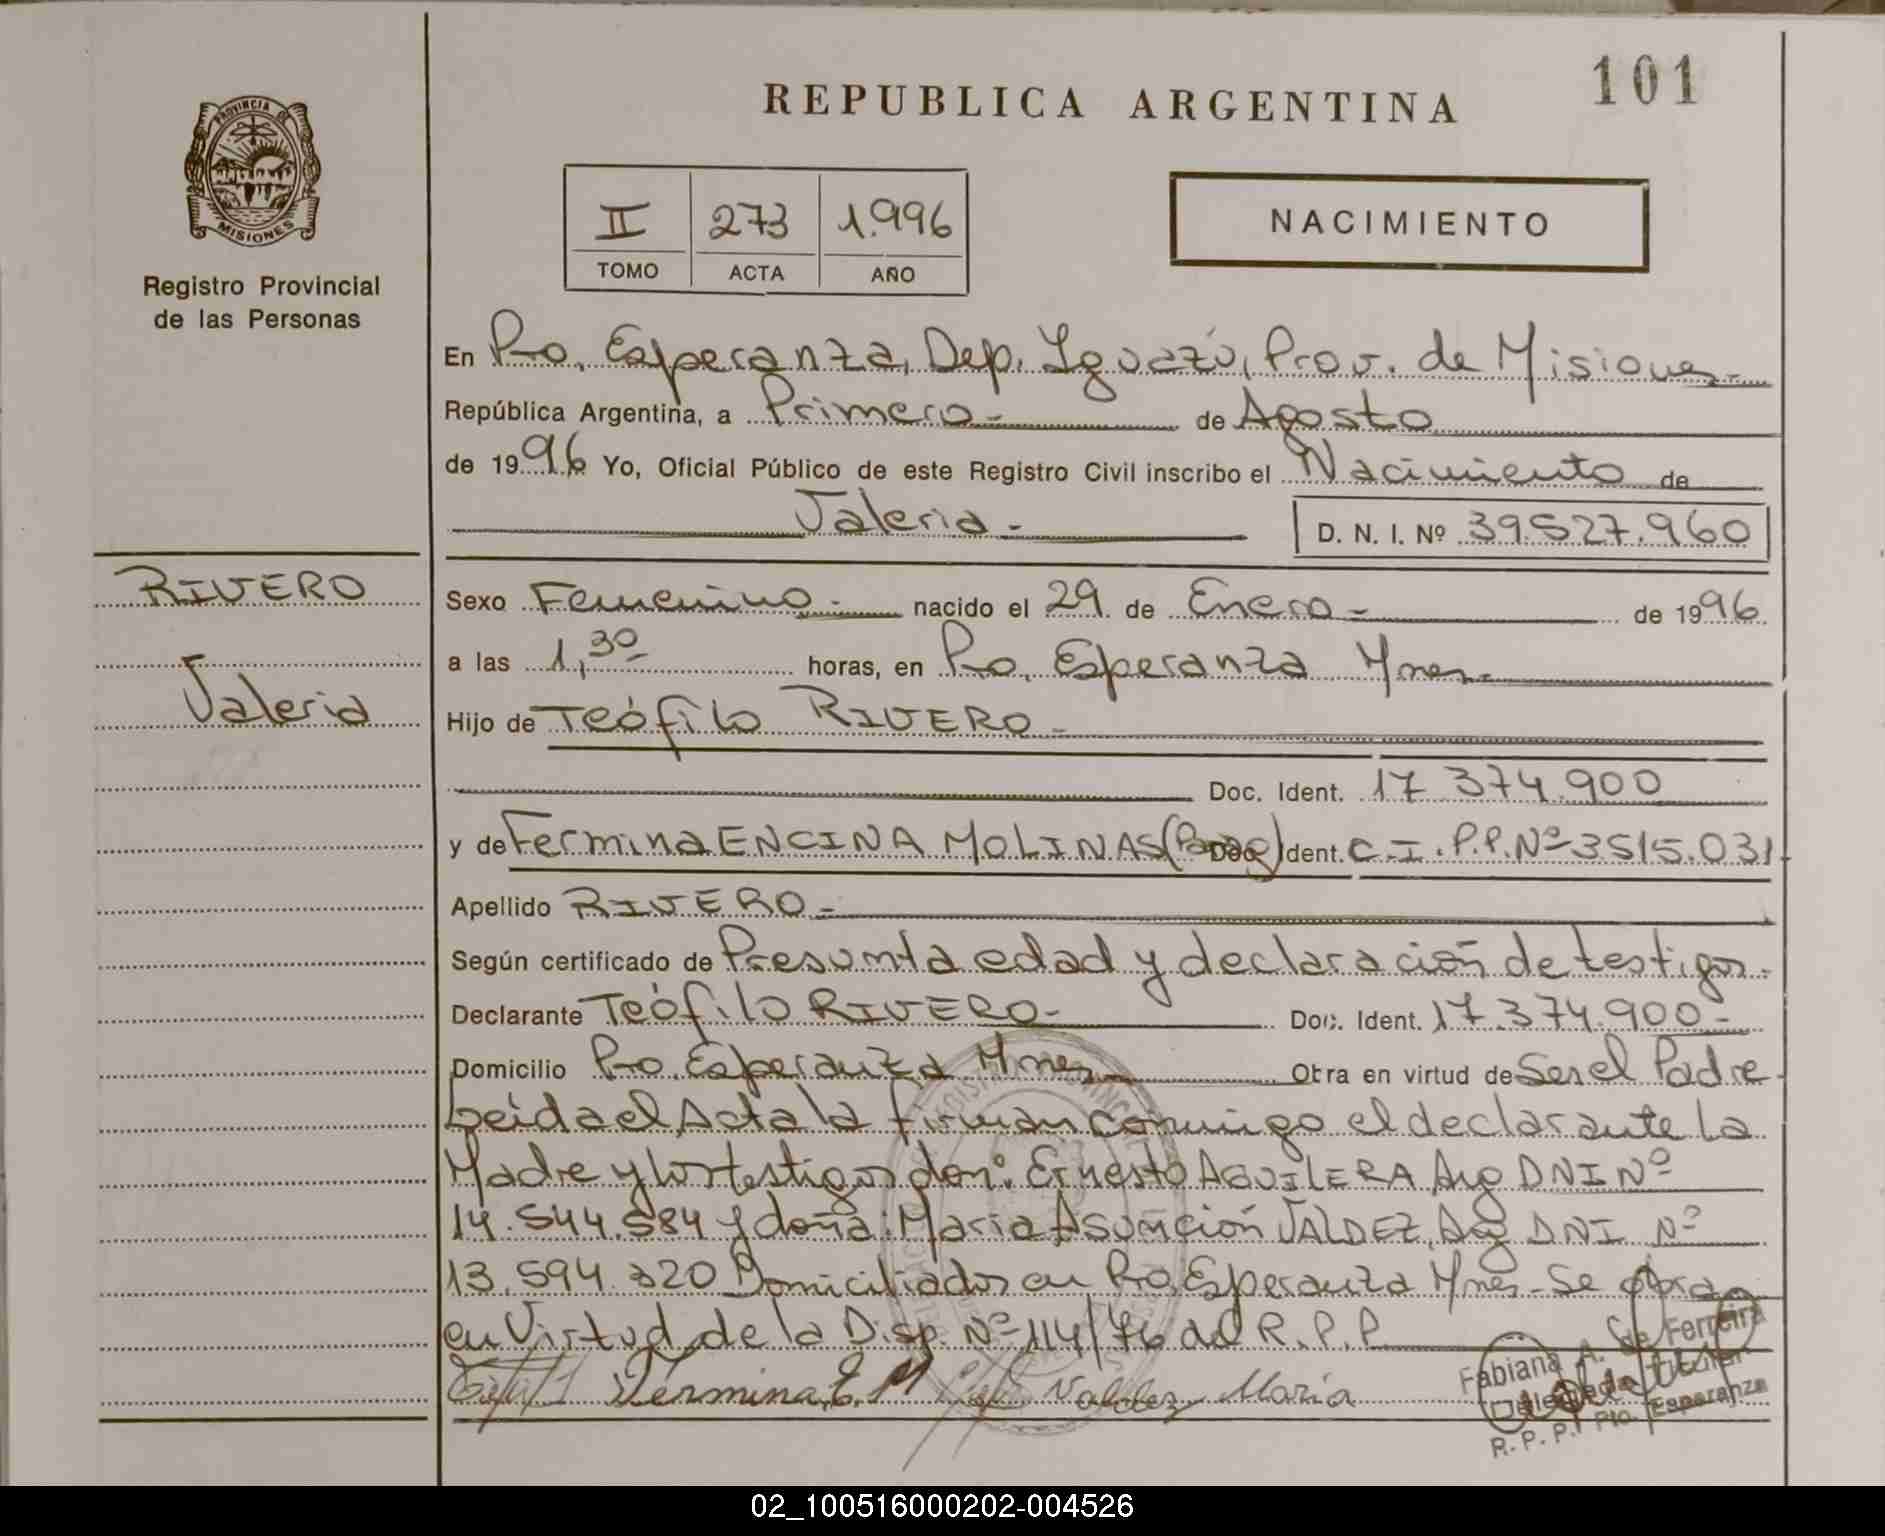 101
REPUBLICA ARGENTINA
PROVINCIA DE
MISIONES
Registro Provincial
de las Personas
II 273 1.996
TOMO ACTA AÑO
NACIMIENTO
En Pto. Esperanza, Dep. Iguazú, Prov. de Misiones-
República Argentina, a Primero- de Agosto
de 1996 Yo, Oficial Público de este Registro Civil inscribo el Nacimiento de
Valeria-
D. N. I. Nº 39.527.960
RIVERO
Valeria
Sexo Femenino- nacido el 29 de Enero- de 1996
a las 1,30 horas, en Pto. Esperanza Mnes-
Hijo de Teófilo RIVERO-
Doc. Ident. 17 374.900
y de Fermina ENCINA MOLINAS (Parag) Doc. Ident. C.I.P.P.Nº 3515.031
Apellido RIVERO-
Según certificado de Presunta edad y declaración de testigos-
Declarante Teófilo RIVERO- Doc. Ident. 17.374.900-
Domicilio Pto. Esperanza Mnes- Otra en virtud de Ser el Padre
Leida el Acta la firman conmigo el declarante la
Madre y los testigos don: Ernesto AGUILERA Arg DNI Nº
14.544.584 y doña: Maria Asunción VALDEZ, Arg DNI Nº
13.594.320 Domiciliados en Pto. Esperanza Mnes- Se obra
en Virtud de la Disp. Nº 114/76 del R.P.P.
Fermina E. M Valdez Maria
Fabiana A. de Ferreira
Delegada Titular
R. P. P. Pto. Esperanza
02_100516000202-004526